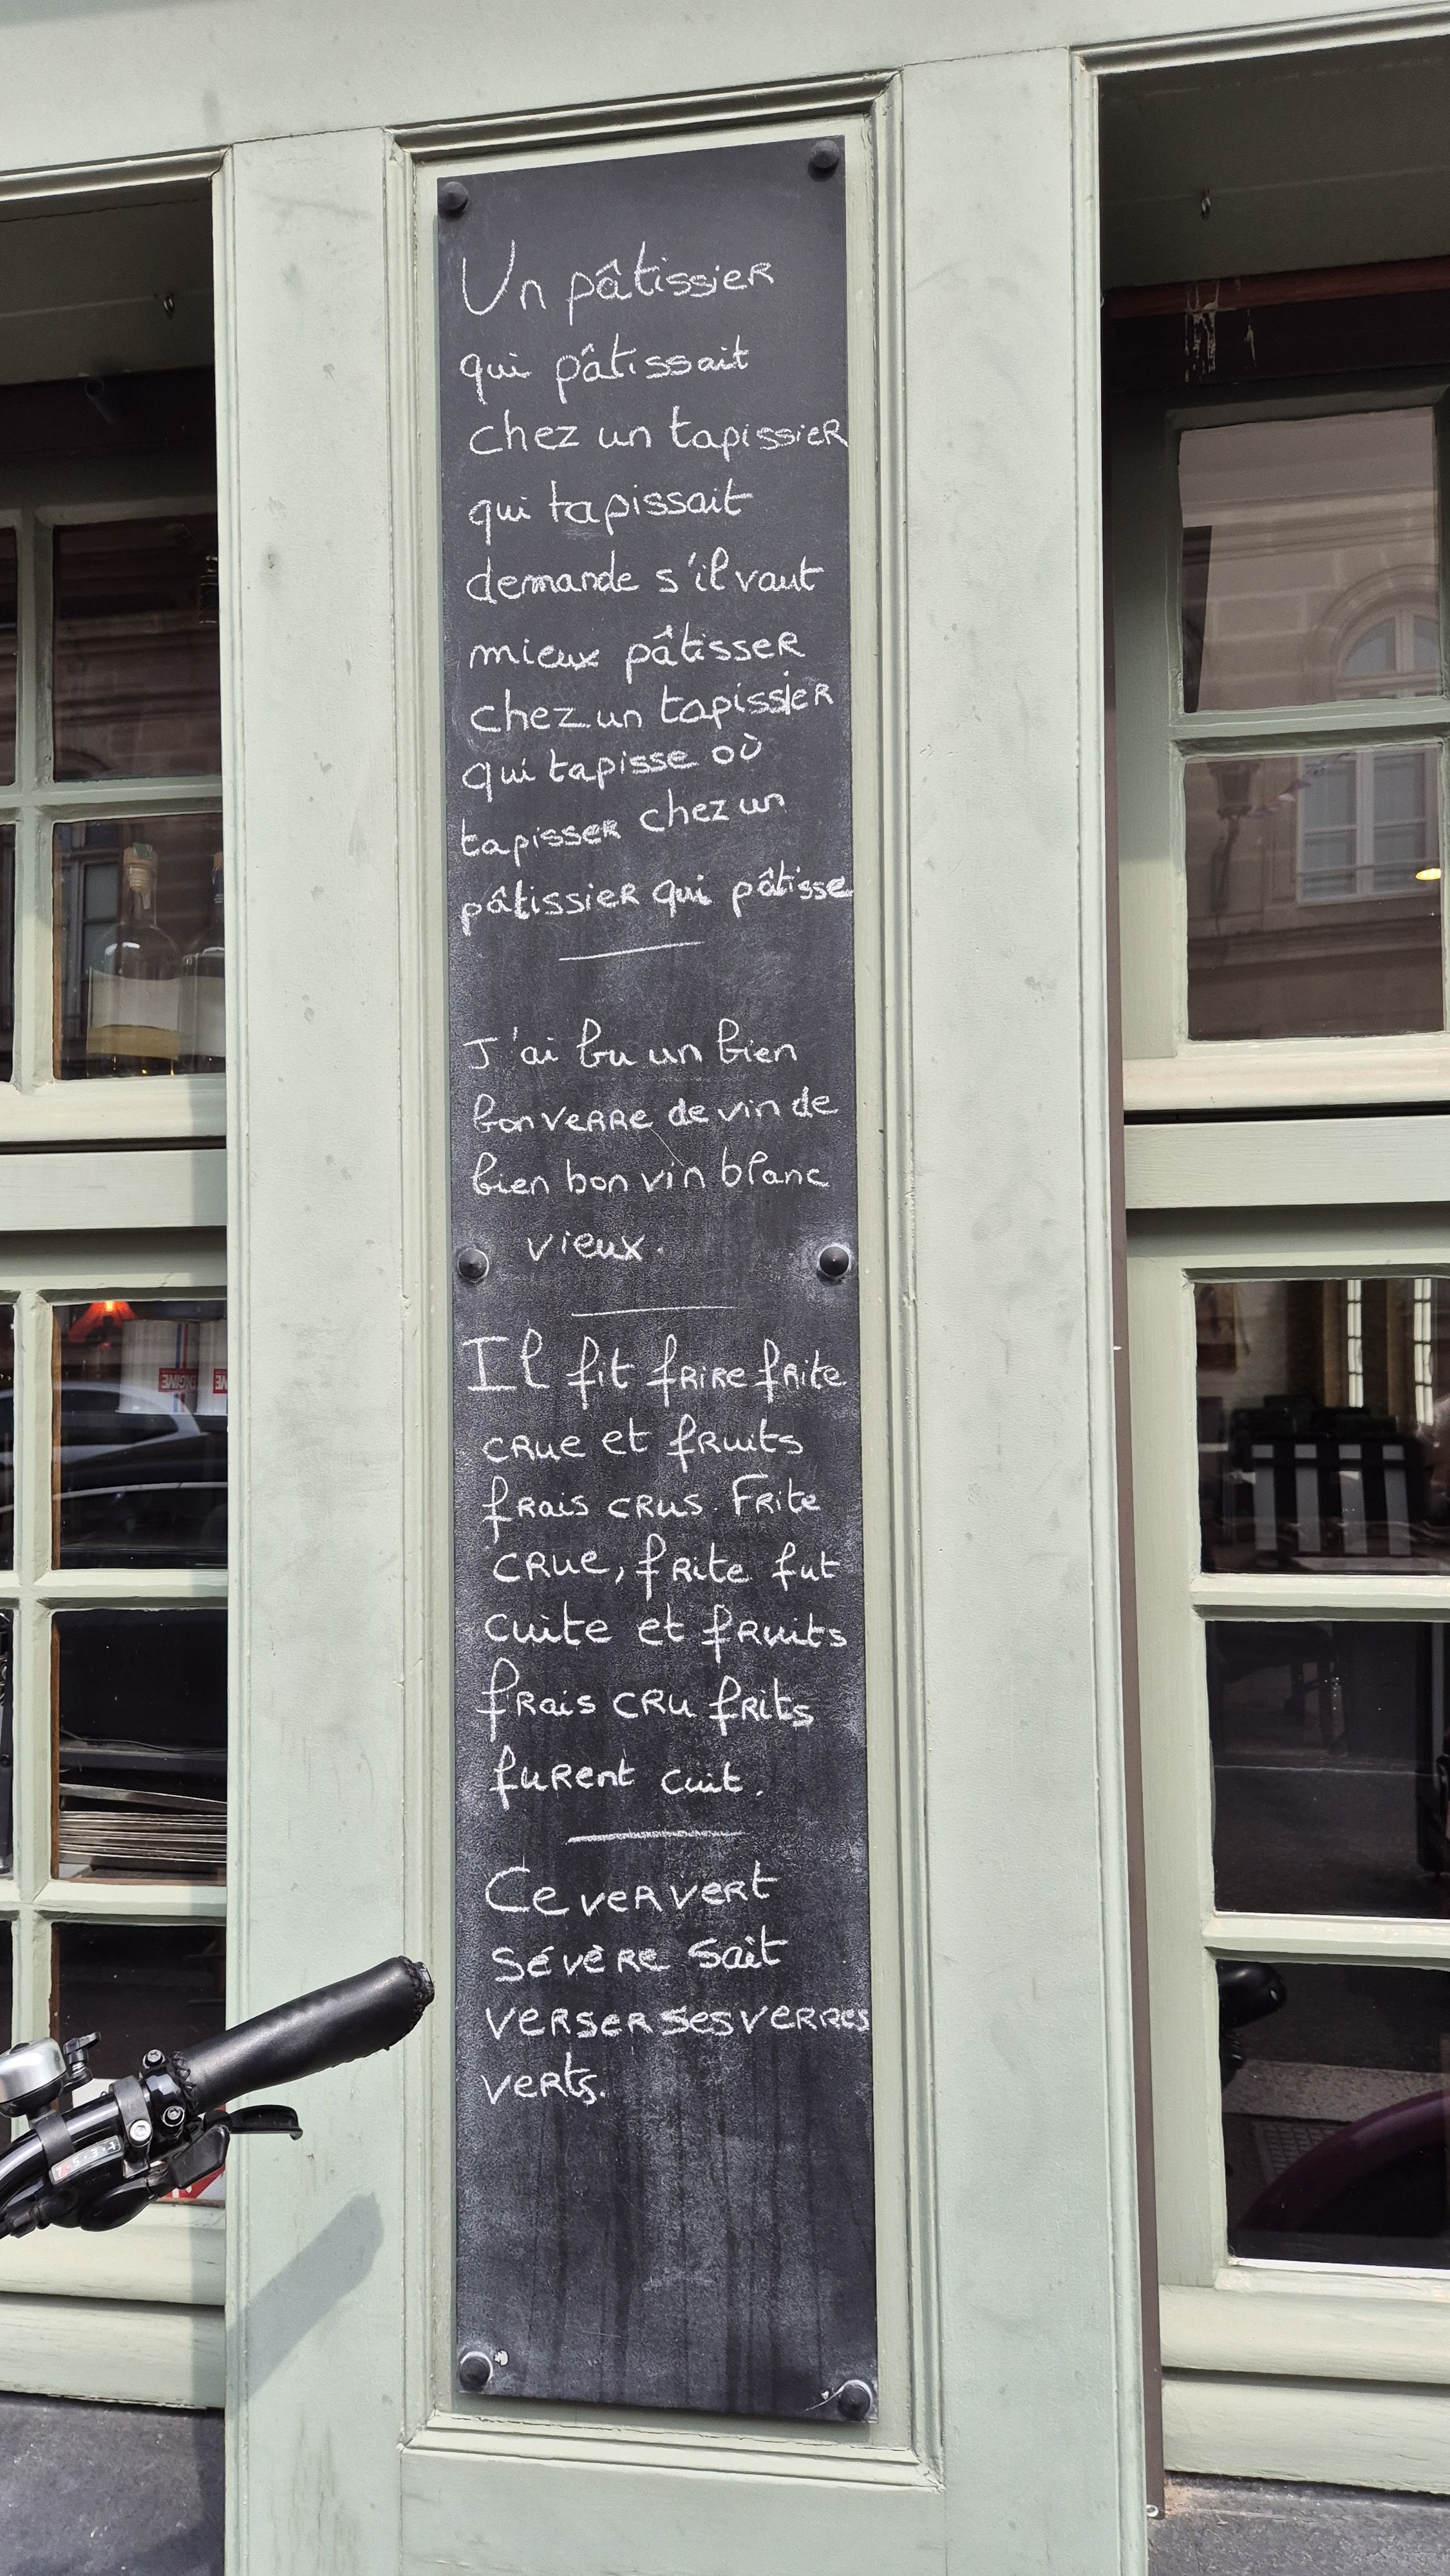 Un pâtissier
qui pâtissait
chez un tapissier
qui tapissait
demande s'il vaut
mieux pâtisser
chez un tapissier
qui tapisse où
tapisser chez un
pâtissier qui pâtisse
J'ai bu un bien
bon verre de vin de
bien bon vin blanc
vieux.
Il fit frire frite
crue et fruits
frais crus. Frite
crue, frite fut
cuite et fruits
frais cru frits
furent cuit.
Ce ver vert
sévère sait
verser ses verres
verts.